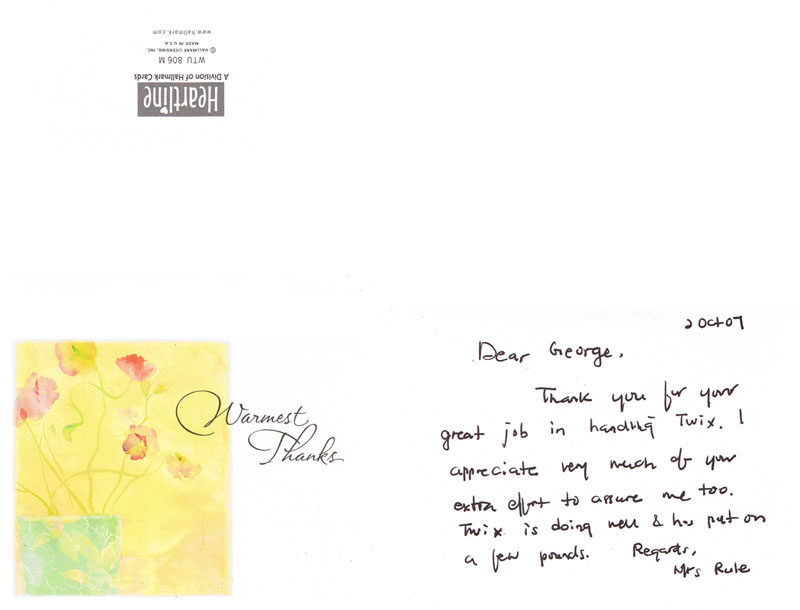 www.hallmark.com
© HALLMARK LICENSING, INC.
MADE IN U.S.A.
WTU 806 M
A Division of Hallmark Cards
Heartline
Warmest
Thanks
2 Oct 07
Dear George,
Thank you for your
great job in handling Twix. I
appreciate very much of your
extra effort to assure me too.
Twix is doing well & has put on
a few pounds. Regards,
Mrs Rule